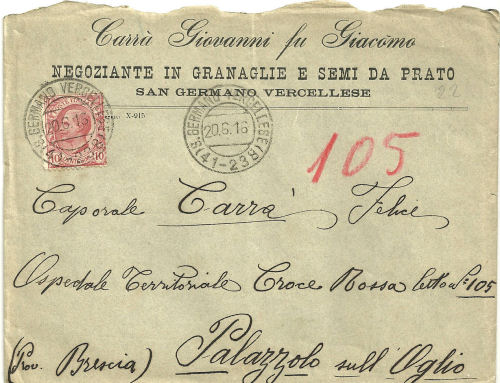 Carrà Giovanni fu Giacomo
NEGOZIANTE IN GRANAGLIE E SEMI DA PRATO
SAN GERMANO VERCELLESE
22
X-915
S. GERMANO VERCELLESE
20.6.16
(41-238)
S. GERMANO VERCELLESE
20.6.16
(41-238)
10 10
105
Caporale Carrà Felice
Ospedale Territoriale Croce Rossa letto N° 105
(Prov. Brescia) Palazzolo sull'Oglio